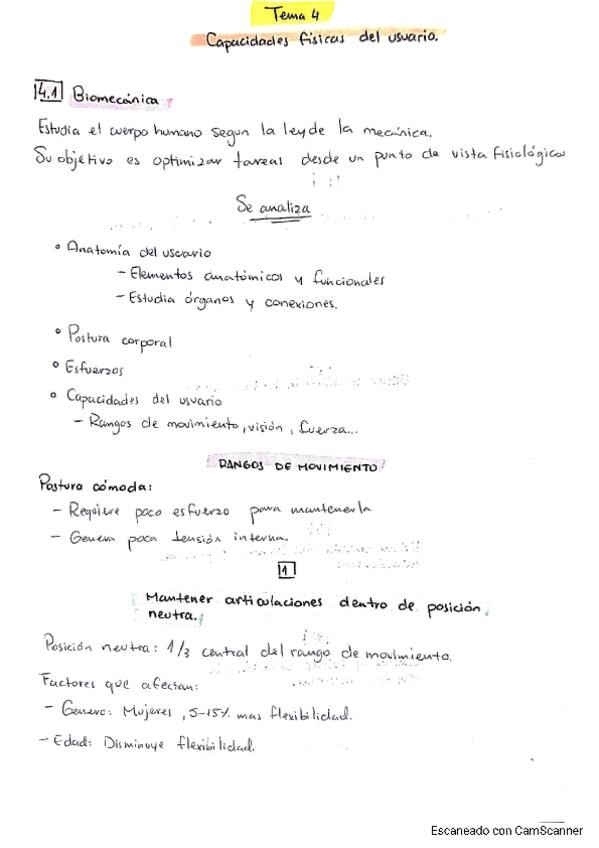 Tema 4
Capacidades físicas del usuario.
4.1 Biomecánica
Estudia el cuerpo humano segun la ley de la mecánica.
Su objetivo es optimizar tareas desde un punto de vista fisiológico
Se analiza
• Anatomía del usuario
- Elementos anatómicos y funcionales
- Estudia órganos y conexiones.
• Postura corporal
• Esfuerzos
• Capacidades del usuario
- Rangos de movimiento, visión, fuerza...
RANGOS DE MOVIMIENTO
Postura cómoda:
- Requiere poco esfuerzo para mantenerla
- Genera poca tensión interna.
1
Mantener articulaciones dentro de posición
neutra.
Posición neutra: 1/3 central del rango de movimiento.
Factores que afectan:
- Genero: Mujeres, 5-15% mas flexibilidad.
- Edad: Disminuye flexibilidad.
Escaneado con CamScanner